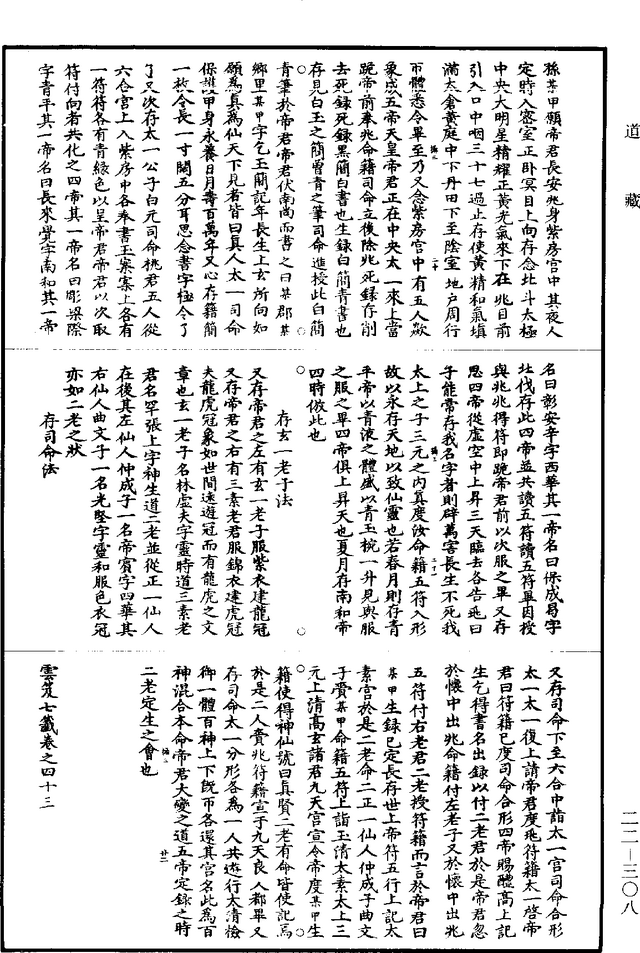 道藏
孫某甲願帝君長安兆身紫房宮中其夜人
定時入密室正卧冥目上向存念北斗太極
中央大明星精耀正黃光氣來下在兆目前
引入口中咽三十七過止存使黃精和氣填
滿太倉黃庭中下丹田下至陰室地戶周行
帀體悉令畢至乃又念紫房宮中有五人歘
象成五帝天皇帝君正在中央太一來上當
跪帝前奉兆命籍司命立後除兆死録存削
去死録死録黑簡白書也生録白簡青書也
存見白玉之簡曾青之筆司命進授此白簡
青筆於帝君帝君伏南向而書之曰某郡某
鄉里某甲字乞玉簡記年長生上玄所向如
願為真為仙天下見者皆曰真人太一司命
保護甲身永養日月壽百萬年又心存籍簡
一枚令長一寸闊五分耳思念書字極令了
了又次存太一公子白元司命桃君五人從
六合宮上入紫房中各奉書玉案案上各有
一符符各有青緑色以呈帝君帝君以次取
符付向者共化之四帝其一帝名曰彫梁際
字青平其一帝名曰長來覺字南和其一帝
名曰彰安辛字西華其一帝名曰保成曷字
北伐存此四帝並共讀五符讀五符畢因授
與兆兆得符即跪帝君前以次服之畢又存
思四帝從虛空中上昇三天臨去各告兆曰
子能常存我名字者則辟萬害長生不死我
太上之子三元之内真度汝命籍五符入形
故以永存天地以致仙靈也若春月則存青
平帝以青液之體盛以青玉椀一升見與服
之服之畢四帝俱上昇天也夏月存南和帝
四時倣此也
存玄一老子法
又存帝君之左有玄一老子服紫衣建龍冠
又存帝君之右有三素老君服錦衣建虎冠
夫龍虎冠象如世間遠遊冠而有龍虎之文
章也玄一老子名林虛夫字靈時道三素老
君名罕張上字神生道二老並從正一仙人
在後其左仙人仲成子一名帝賓字四華其
右仙人曲文子一名光堅字靈和服色衣冠
亦如二老之狀
存司命法
又存司命下至六合中詣太一宮司命合形
太一太一復上請帝君度兆符籍太一啓帝
君曰符籍已度司命合形四帝賜體高上記
生乞得書名出録以付二老君於是帝君忽
於懷中出兆命籍付左老子又於懷中出兆
五符付右老君二老授符籍而言於帝君曰
某甲生録已定長存世上帝符五行上記太
素宮於是二老命二正一仙人仲成子曲文
子賫某甲命籍五符上詣玉清太素太上三
元上清高玄諸君九天宮宣令帝度某甲生
籍使得神仙號曰真賢二老有命皆使記焉
於是二人賫兆符籍宣于九天良人都畢又
存司命太一分形各為一人共遊行太清檢
御一體百神上下既帀各還其宮名此為百
神混合本命帝君大變之道五帝定録之時
二老定生之會也
雲笈七籤卷之四十三
二二—三〇八